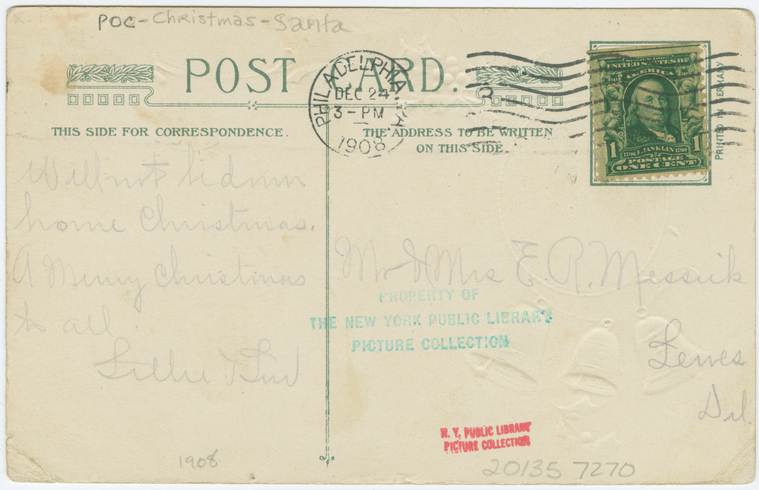 POC-Christmas-Santa
POST CARD.
PHILADELPHIA, PA.
DEC 24
3-PM
1908
UNITED STATES OF AMERICA
1 FRANKLIN 1
POSTAGE
ONE CENT
PRINTED IN GERMANY
THIS SIDE FOR CORRESPONDENCE.
THE ADDRESS TO BE WRITTEN
ON THIS SIDE.
Will not be down
home Christmas.
A Merry Christmas
to all.
Lillie &
Mr & Mrs E. R. Messick
Lewes
Del.
PROPERTY OF
THE NEW YORK PUBLIC LIBRARY
PICTURE COLLECTION
N. Y. PUBLIC LIBRARY
PICTURE COLLECTION
1908
20135 7270